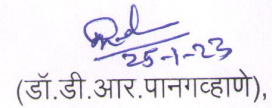 25-1-23
(डॉ.डी.आर.पानगव्हाणे),